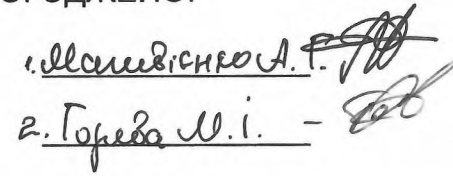 1. Матвієнко А. Г.
2. Горева М. І. -